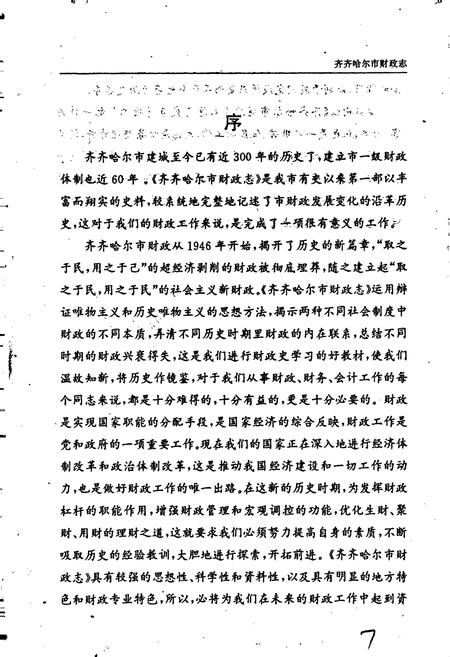 齐齐哈尔市财政志
序
齐齐哈尔市建城至今已有近300年的历史了,建立市一级财政
体制也近60年。《齐齐哈尔市财政志》是我市有史以来第一部以丰
富而翔实的史料,较系统地完整地记述了市财政发展变化的沿革历
史,这对于我们的财政工作来说,是完成了一项很有意义的工作。
齐齐哈尔市财政从1946年开始,揭开了历史的新篇章,“取之
于民,用之于己”的超经济剥削的财政被彻底埋葬,随之建立起“取
之于民,用之于民”的社会主义新财政。《齐齐哈尔市财政志》运用辩
证唯物主义和历史唯物主义的思想方法,揭示两种不同社会制度中
财政的不同本质,弄清不同历史时期里财政的内在联系,总结不同
时期的财政兴衰得失,这是我们进行财政史学习的好教材,使我们
温故知新,将历史作镜鉴,对于我们从事财政、财务、会计工作的每
个同志来说,都是十分难得的,十分有益的,更是十分必要的。财政
是实现国家职能的分配手段,是国家经济的综合反映,财政工作是
党和政府的一项重要工作。现在我们的国家正在深入地进行经济体
制改革和政治体制改革,这是推动我国经济建设和一切工作的动
力,也是做好财政工作的唯一出路。在这新的历史时期,为发挥财政
杠杆的职能作用,增强财政管理和宏观调控的功能,优化生财、聚
财、用财的理财之道,这就要求我们必须努力提高自身的素质,不断
吸取历史的经验教训,大胆地进行探索,开拓前进。《齐齐哈尔市财
政志》具有较强的思想性、科学性和资料性,以及具有明显的地方特
色和财政专业特色,所以,必将为我们在未来的财政工作中起到资
7